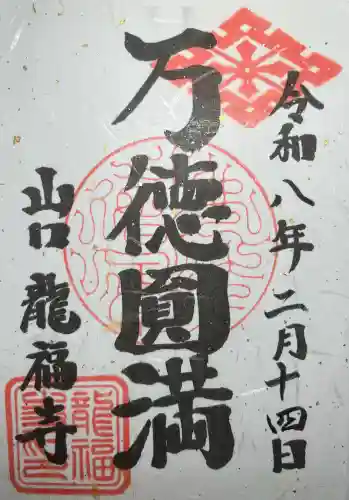 令和八年二月十四日
万徳圓満
山口龍福寺
龍福